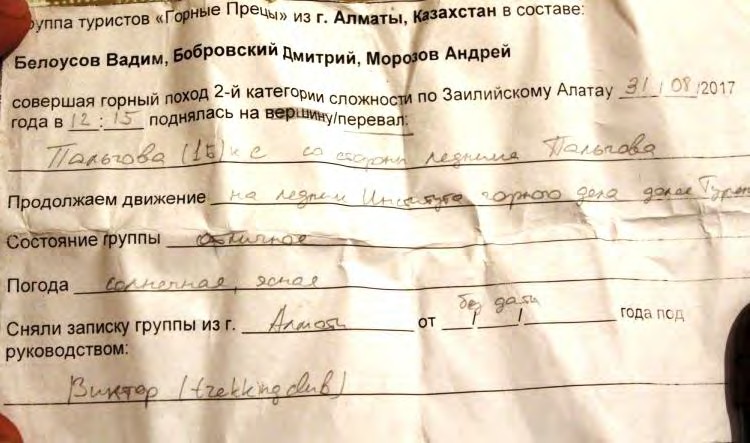 руппа туристов «Горные Прецы» из г. Алматы, Казахстан в составе:
Белоусов Вадим, Бобровский Дмитрий, Морозов Андрей
совершая горный поход 2-й категории сложности по Заилийскому Алатау 31/08/2017
года в 12:15 поднялась на вершину/перевал:
Пальгова (1Б) к с со стороны ледника Пальгова
Продолжаем движение на ледник Института горного дела далее
Состояние группы отличное
Погода солнечная, ясная
Сняли записку группы из г. Алматы от без даты / / года под
руководством:
Виктор (trekkingclub)